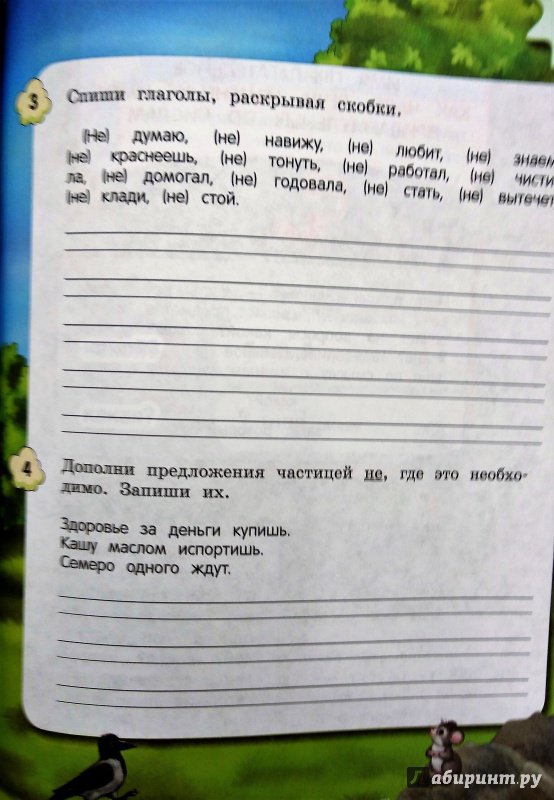 3
Спиши глаголы, раскрывая скобки,
(Не) думаю, (не) навижу, (не) любит, (не) знаем
(не) краснеешь, (не) тонуть, (не) работал, (не) чисти
ла, (не) домогал, (не) годовала, (не) стать, (не) вытечет
(не) клади, (не) стой.
4
Дополни предложения частицей не, где это необхо-
димо. Запиши их.
Здоровье за деньги купишь.
Кашу маслом испортишь.
Семеро одного ждут.
абиринт.ру